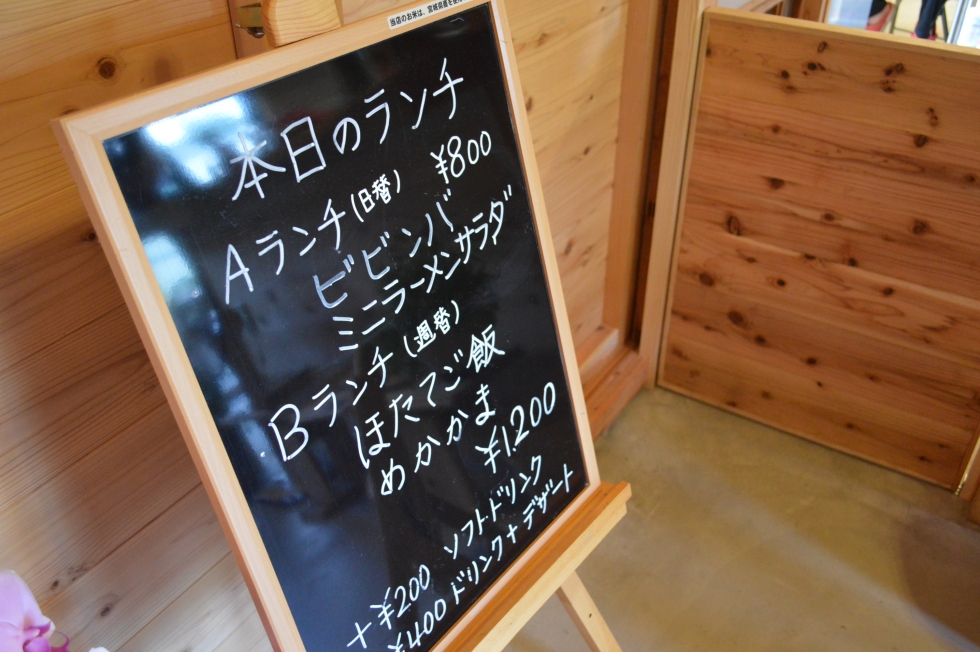 当店のお米は、宮城県産を使
本日のランチ
Aランチ(日替) ¥800
ビビンバ
ミニラーメンサラダ
Bランチ(週替)
ほたてご飯
めかかま
¥1.200
+¥200 ソフトドリンク
¥400 ドリンク+デザート